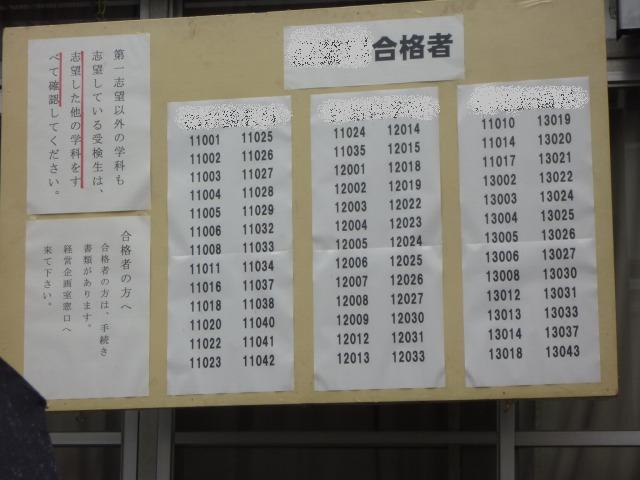 合格者
第一志望以外の学科も
志望している受検生は、
志望した他の学科をす
べて確認してください。
合格者の方へ
合格者の方は、手続き
書類があります。
経営企画室窓口へ
来て下さい。
11001 11025
11002 11026
11003 11027
11004 11028
11005 11029
11006 11032
11008 11033
11011 11034
11016 11037
11018 11038
11020 11040
11022 11041
11023 11042
11024 12014
11035 12015
12001 12018
12002 12019
12003 12022
12004 12023
12005 12024
12006 12025
12007 12026
12008 12027
12009 12030
12012 12031
12013 12033
11010 13019
11014 13020
11017 13021
13002 13022
13003 13024
13004 13025
13005 13026
13006 13027
13008 13030
13012 13031
13013 13033
13014 13037
13018 13043